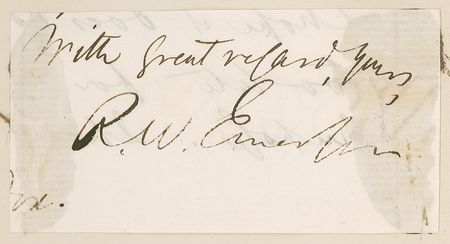 With great regard, yours,
R. W. Emerson